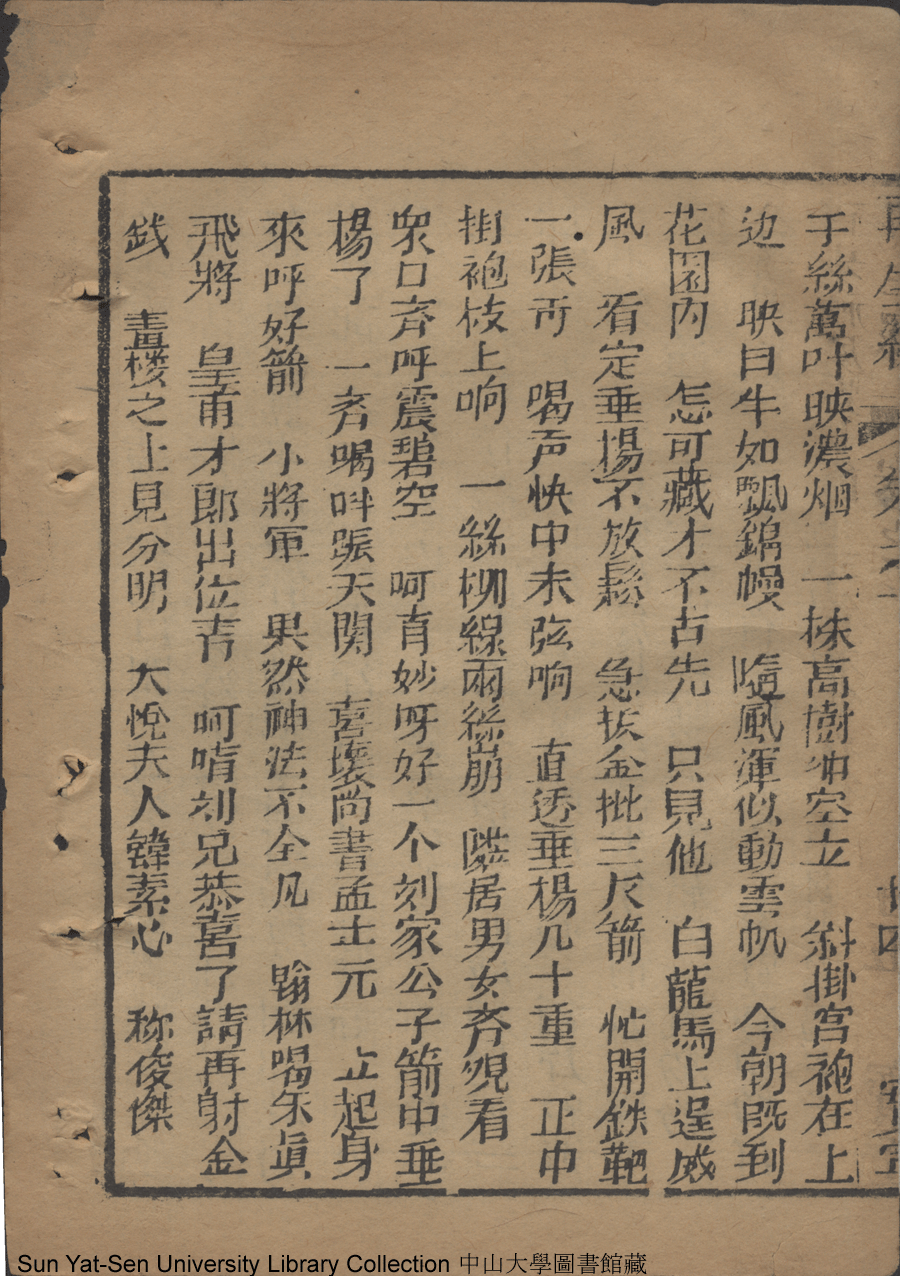 千絲萬叶映濃烟 一株高樹冲空立 斜掛宮袍在上
边 映日牛如飄錦幔 隨風渾似動雲帆 今朝既到
花園內 怎可藏才不占先 只見他 白龍馬上逞威
風 看定垂揚不放鬆 急扳金批三尺箭 忙開鉄靶
一張弓 喝声快中未弦响 直透垂楊几十重 正中
掛袍枝上响 一絲柳線兩絲崩 隣居男女齐观看
衆口齐呼震碧空 呵育妙呀好一个刘家公子箭中垂
楊了 一齐喝吽振天関 喜壞尚書孟士元 立起身
來呼好箭 小將軍 果然神法不全凡 翰林喝朱眞
飛將 皇甫才郎出位言 呵唷刘兄恭喜了請再射金
錢 畫楼之上見分明 大悅夫人韓素心 称俊傑
Sun Yat-Sen University Library Collection 中山大學圖書館藏